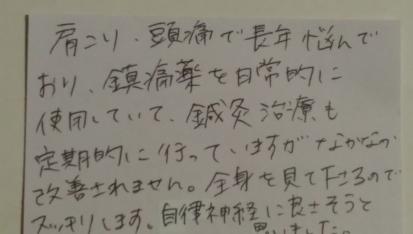 肩こり、頭痛で長年悩んで
おり、鎮痛薬を日常的に
使用していて、鍼灸治療も
定期的に行っていますがなかなか
改善されません。全身を見て下さるので
スッキリします。自律神経に良さそうと
思いました。